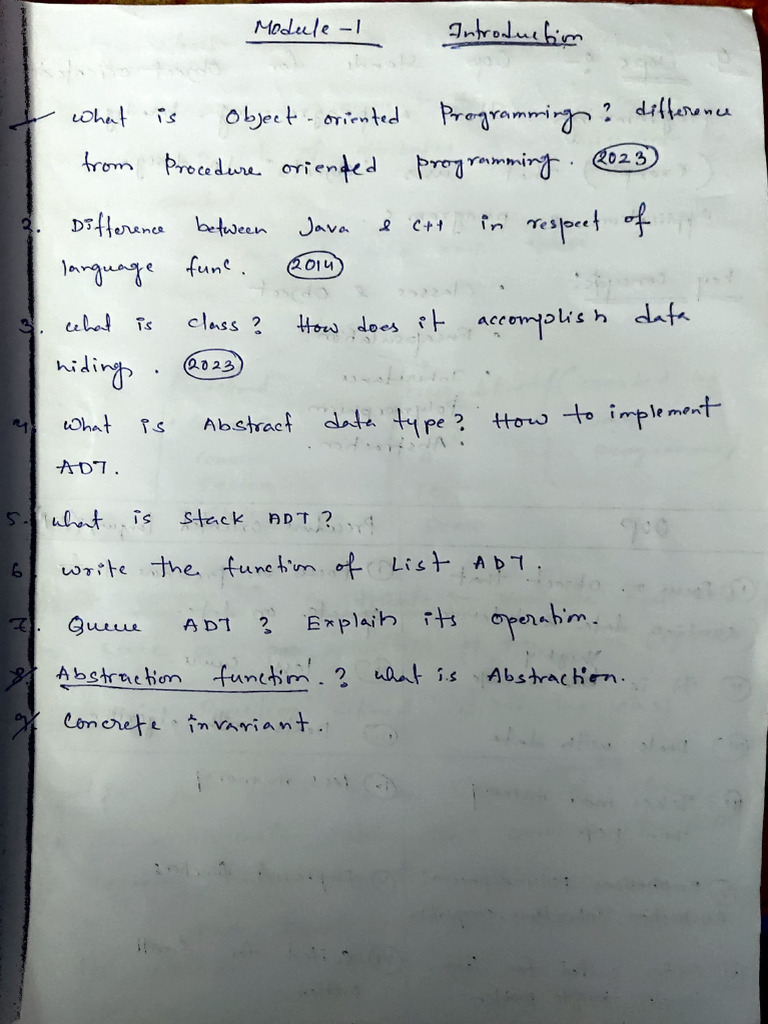 Module - 1 Introduction
1 What is Object-oriented Programming? difference
from Procedure oriented programming. 2023
2. Difference between Java & C++ in respect of
language func. 2014
3. What is class? How does it accomplish data
hiding. 2023
4. What is Abstract data type? How to implement
ADT.
5. What is Stack ADT?
6. Write the function of List ADT.
7. Queue ADT? Explain its operation.
8. Abstraction function.? What is Abstraction.
9. Concrete invariant.